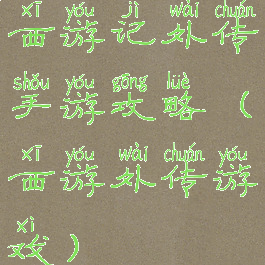 xī yóu jì wài chuán
西游记外传
shǒu yóu gōng lüè
手游攻略（
xī yóu wài chuán yóu
西游外传游
xì
戏）